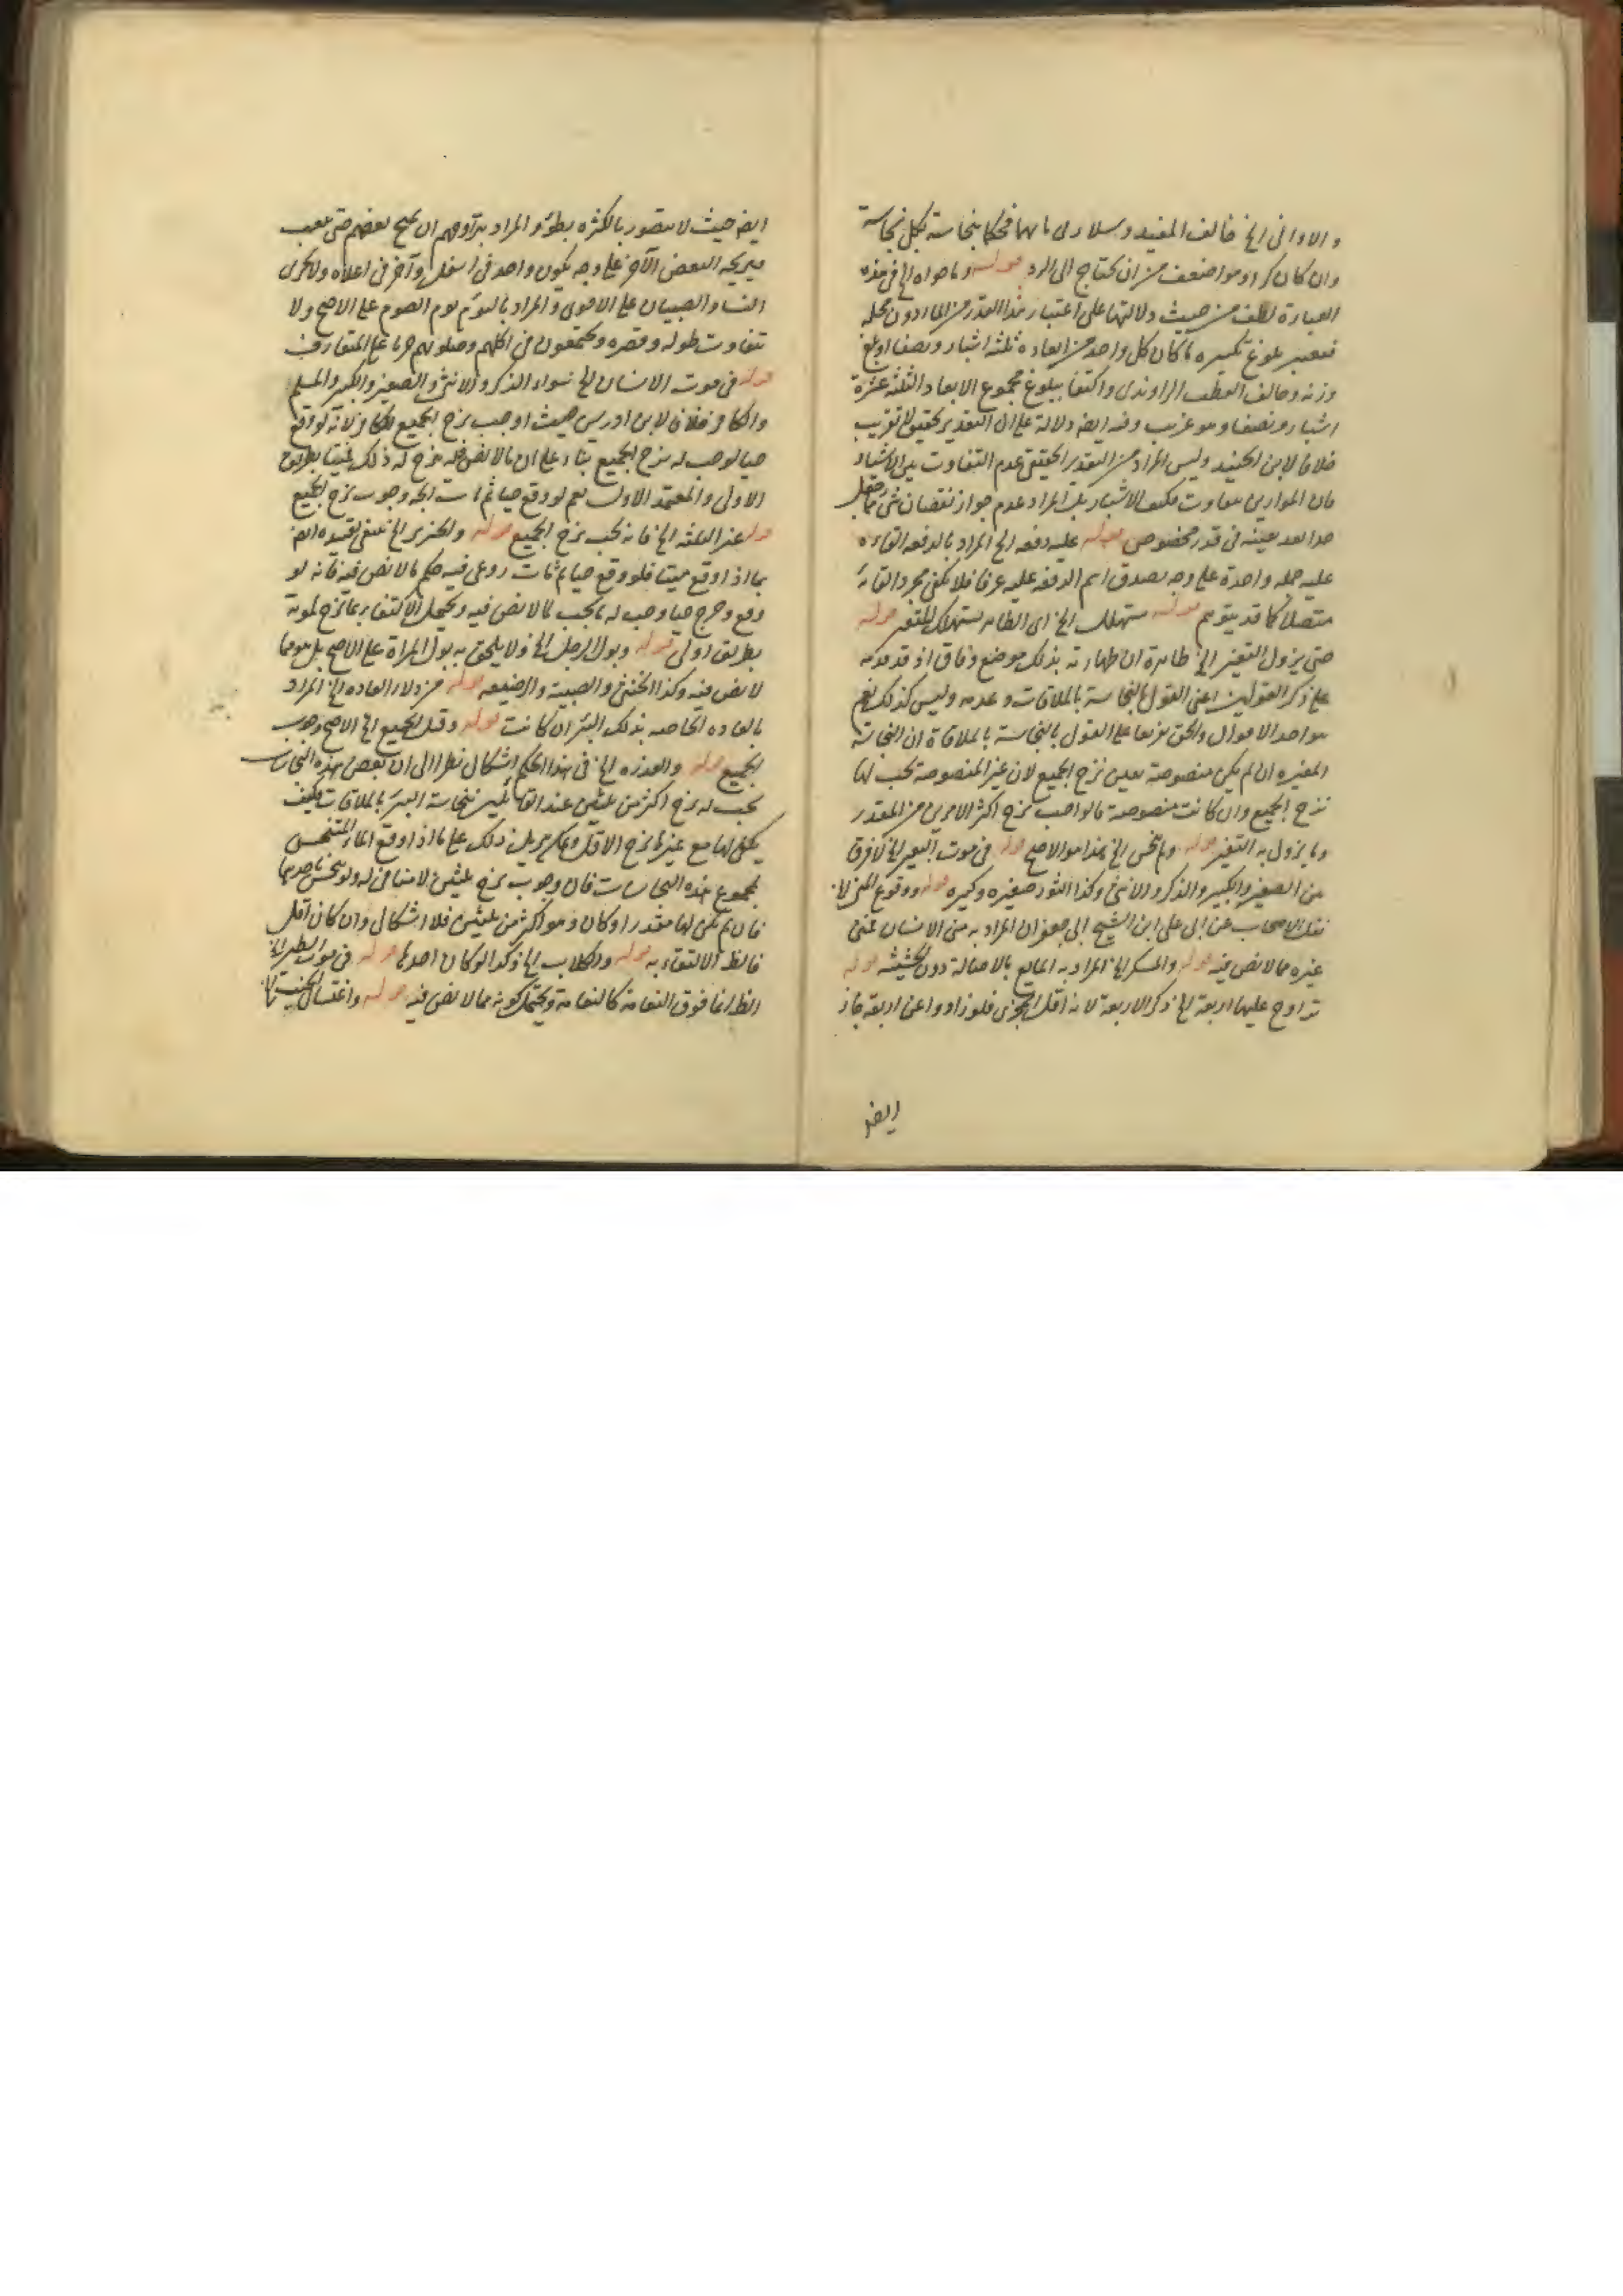 والاواني الخ خالف المفيد وسلار في مائهما فحكما بنجاسة بكل نجاسة
وان كان كرا وهو اضعف من ان يحتاج الى الرد قوله وما حواه الخ في هذه
العبارة لطف من حيث دلالتها على اعتبار هذا القدر من الماء دون محله
فيعتبر بلوغ تكسيره ما كان كل واحد من ابعاده ثلثة اشبار ونصفا او بلغ
وزنه وخالف القطب الراوندي واكتفا ببلوغ مجموع الابعاد الثلثة عشرة
اشبار ونصفا وهو غريب وفيه ايضا دلالة على ان التقدير تحقيق لا تقريب
خلافا لابن الجنيد وليس المراد من التقدير الحقيقي عدم التفاوت بين الاشبار
فان الموازين تتفاوت فكيف الاشبار بل المراد عدم جواز نقصان شئ مما جعل
حدا بعد تعينه في قدر مخصوص قوله عليه دفعة الخ المراد بالدفعة القاءه
عليه جملة واحدة على وجه يصدق اسم الدفعة عليه عرفا فلا يكفي مجرد القائه
متصلا كما قد يتوهم قوله مستهلك الخ اى الطاهر يستهلك المتغير قوله
حتى يزول التغير الخ ظاهره ان طهارته بذلك موضع وفاق اذ قدمه
على ذكر القولين اعني القول بالنجاسة بالملاقات وعدمه وليس كذلك نعم
هو احد الاقوال والحق تفريعا على القول بالنجاسة بالملاقاة ان النجاسة
المغيرة ان لم يكن منصوصة تعين نزح الجميع لان غير المنصوصة يجب لها
نزح الجميع وان كانت منصوصة فالواجب نزح اكثر الامرين من المقدر
وما يزول به التغير قوله ولم ينجس الخ هذا هو الاصح قوله في موت البعير الخ لا فرق
بين الصغير والكبير والذكر والانثى وكذا الثور صغيره وكبيره قوله ووقوع المني الخ
نقل الاصحاب عن ابي علي ابن الشيخ ابي جعفر ان المراد به مني الانسان فمني
غيره مما لا نص فيه قوله والمسكر الخ المراد به المايع بالاصالة دون الحشيشة قوله
تراوح عليها اربعة الخ ذكر الاربعة لانه اقل المجزي فلو زادوا عن اربعة جاز
ايضا
ايضا حيث لا يتصور بالكثرة بطؤ والمراد بتراوحهم ان يميح بعضهم حتى يتعب
فيريحه البعض الآخر على وجه يكون واحد في اسفل وآخر في اعلاه ولا يجزى
النساء والصبيان على الاقوى والمراد باليوم يوم الصوم على الاصح ولا
تتفاوت طوله وقصره ويجتمعون في اكلهم وصلوتهم جريا على المتعارف
قوله في موت الانسان الخ سواء الذكر والانثى والصغير والكبير والمسلم
والكافر خلافا لابن ادريس حيث اوجب نزح الجميع للكافر لانه لو وقع
حيا لوجب له نزح الجميع بناء على ان ما لا نص فيه ينزح له ذلك فميتا بطريق
الاولى والمعتمد الاول نعم لو وقع حيا ثم مات اتجه وجوب نزح الجميع
قوله غير الثلثة الخ فانه يجب نزح الجميع قوله والخنزير الخ ينبغي تقييده ايضا
بما اذا وقع ميتا فلو وقع حيا ثم مات روعي فيه حكم ما لا نص فيه فانه لو
وقع وخرج حيا وجب له ما يجب لما لا نص فيه ويحتمل الاكتفاء بما نزح لموته
بطريق اولى قوله وبول الرجل الخ ولا يلحق به بول المراة على الاصح بل هو مما
لا نص فيه وكذا الخنثى والصبية والرضيعة قوله من دلاء العادة الخ المراد
بالعادة الخاصة بذلك البئر ان كانت قوله وقيل الجميع الخ الاصح وجوب
الجميع قوله والعذرة الخ في هذا الحكم اشكال نظرا الى ان بعض هذه النجاسات
يجب له نزح اكثر من ثلثين عند القائلين بنجاسة البئر بالملاقات فكيف
يكفي لها مع غيرها نزح الاقل ويمكن تنزيل ذلك على ما اذا وقع الماء المتنجس
بمجموع هذه النجاسات فان وجوب نزح ثلثين لا منافي له ولو نجس باحديها
فان لم يكن لها مقدر او كان وهو اكثر من ثلثين فلا اشكال وان كان اقل
فالظ الاكتفاء به قوله والكلاب الخ وكذا لو كان احدها قوله في موت الطير الخ
الظ انما فوق النعامة كالنعامة ويحتمل كونه مما لا نص فيه قوله واغتسال الجنب الخ